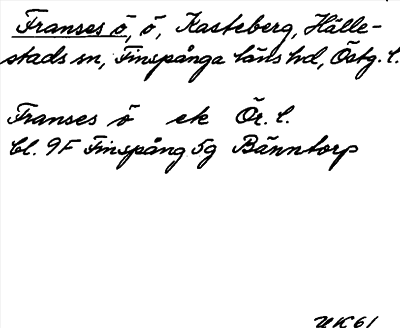 Franses ö, ö, Kasteberg, Hälle-
stads sn, Finspånga läns hd, Östg. l.
Franses ö ek Ör. l.
bl. 9F Finspång 5g Bänntorp
UK61